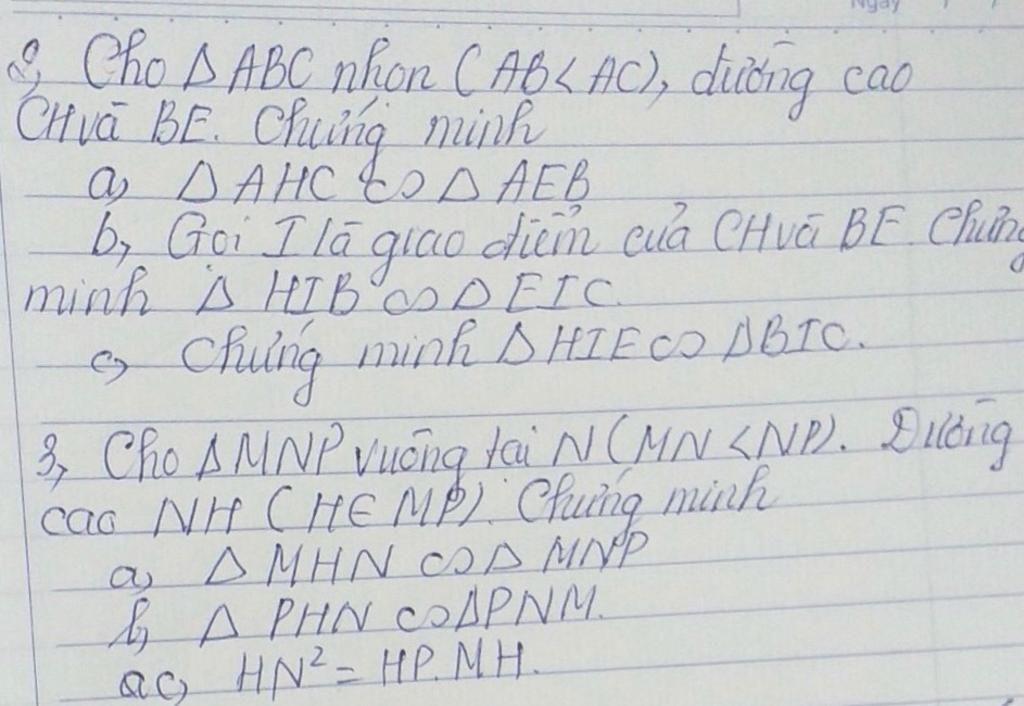 Ngày
2, Cho Δ ABC nhọn (AB < AC), đường cao
CH và BE. Chứng minh
a, Δ AHC ∽ Δ AEB
b, Gọi I là giao điểm của CH và BE. Chứng
minh Δ HIB ∽ Δ EIC.
c, Chứng minh Δ HIE ∽ Δ BIC.
3, Cho Δ MNP vuông tại N (MN < NP). Đường
cao NH (H ∈ MP). Chứng minh
a, Δ MHN ∽ Δ MNP
b, Δ PHN ∽ Δ PNM.
c, HN² = HP.MH.